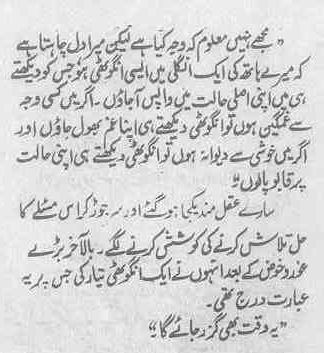 ”مجھے نہیں معلوم کہ وجہ کیا ہے لیکن میرا دل چاہتا ہے
کہ میرے ہاتھ کی ایک انگلی میں ایسی انگوٹھی ہو جس کو دیکھتے
ہی میں اپنی اصلی حالت میں واپس آجاؤں۔ اگر میں کسی وجہ
سے غمگین ہوں تو انگوٹھی دیکھتے ہی اپنا غم بھول جاؤں اور
اگر میں خوشی سے دیوانہ ہوں تو انگوٹھی دیکھتے ہی اپنی حالت
پر قابو پالوں“
سارے عقل مند یکجا ہوگئے اور سر جوڑ کر اس مسئلے کا
حل تلاش کرنے کی کوشش کرنے لگے۔ بالآخر بڑے
غور و خوض کے بعد انہوں نے ایک انگوٹھی تیار کی جس پر یہ
عبارت درج تھی۔
”یہ وقت بھی گزر جائے گا“